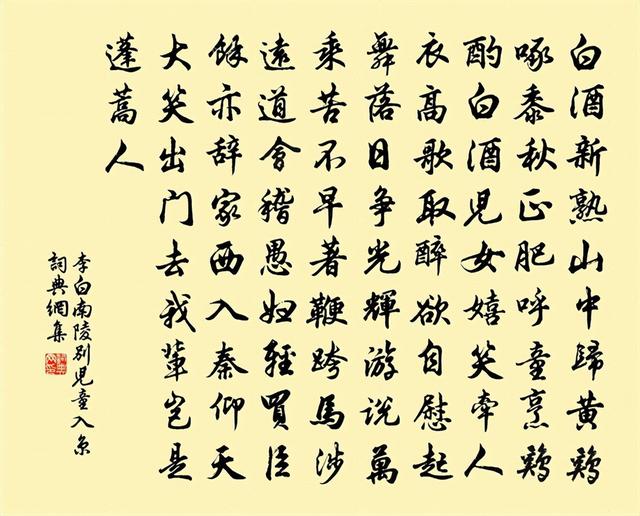 白酒新熟山中歸黃鷄
啄黍秋正肥呼童烹鷄
酌白酒兒女嬉笑牽人
衣高歌取醉欲自慰起
舞落日爭光輝游說萬
乘苦不早著鞭跨馬涉
遠道會稽愚婦輕買臣
餘亦辭家西入秦仰天
大笑出门去我輩豈是
蓬蒿人
李白南陵別兒童入京
詞典網集